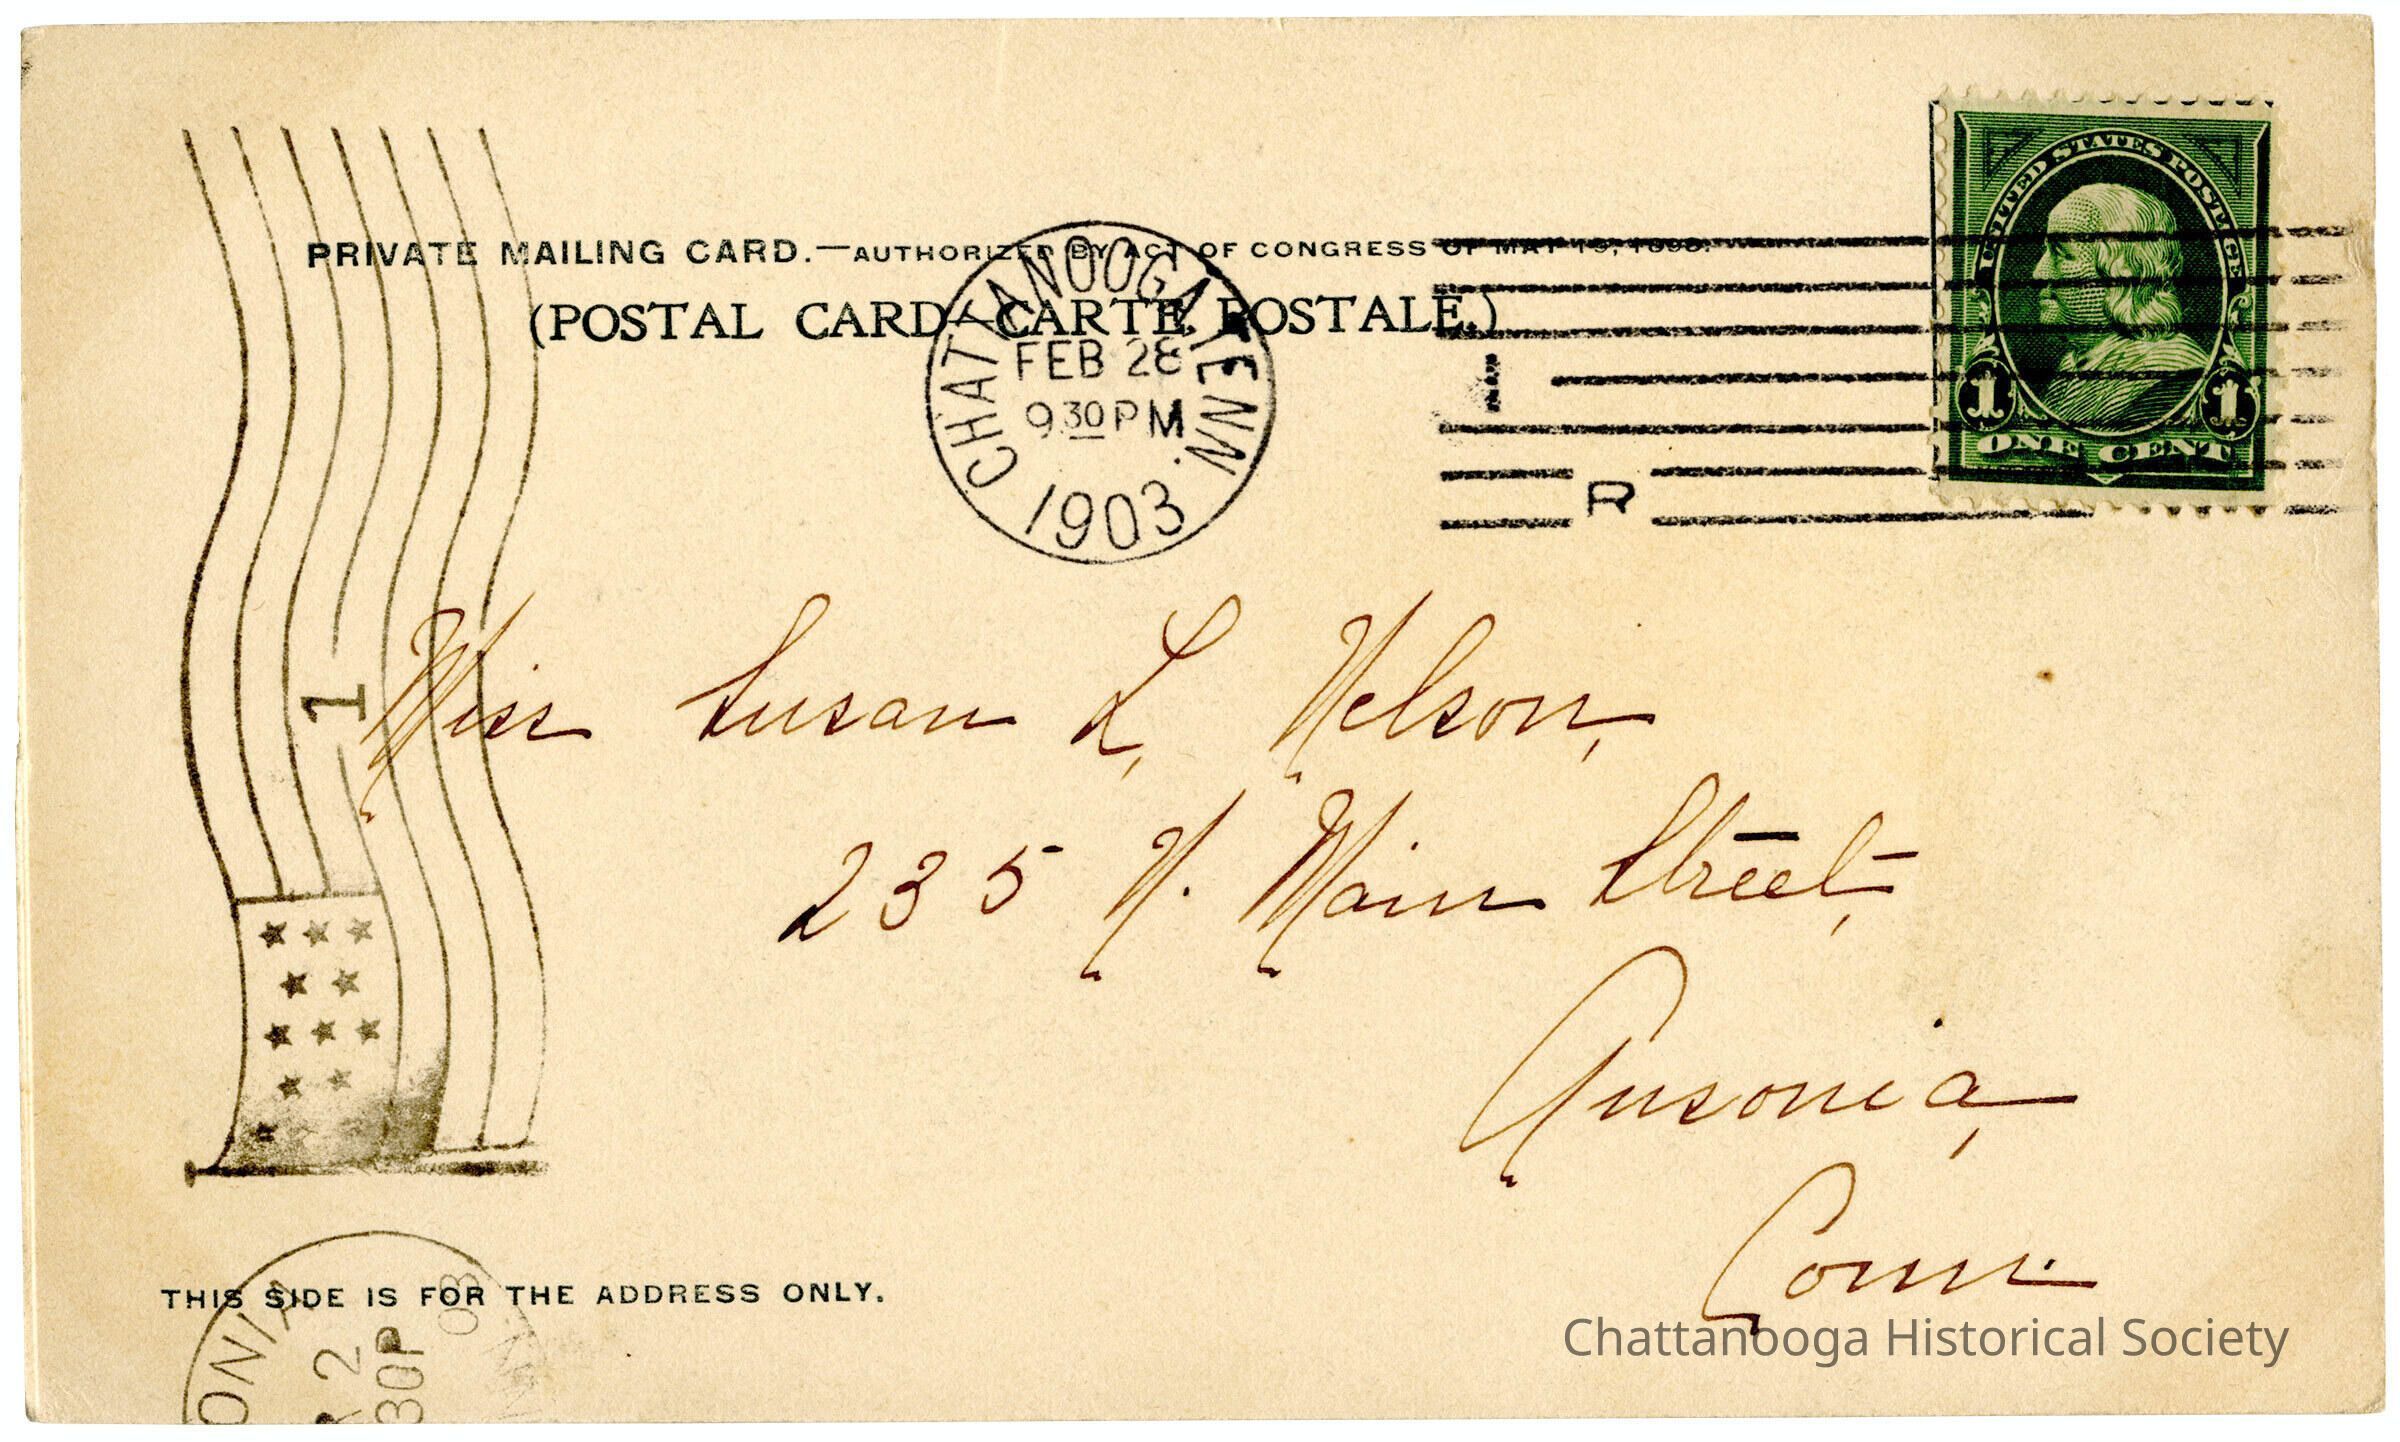 PRIVATE MAILING CARD.—AUTHORIZED BY ACT OF CONGRESS OF MAY 19, 1898.
(POSTAL CARD—CARTE POSTALE.)
CHATTANOOGA, TENN.
FEB 28
9 30 PM
1903
R
UNITED STATES POSTAGE
1 1
ONE CENT
1
Miss Susan L, Nelson,
235 N. Main Street,
Ansonia,
Conn.
THIS SIDE IS FOR THE ADDRESS ONLY.
ONIA
R 2
30P
03
Chattanooga Historical Society